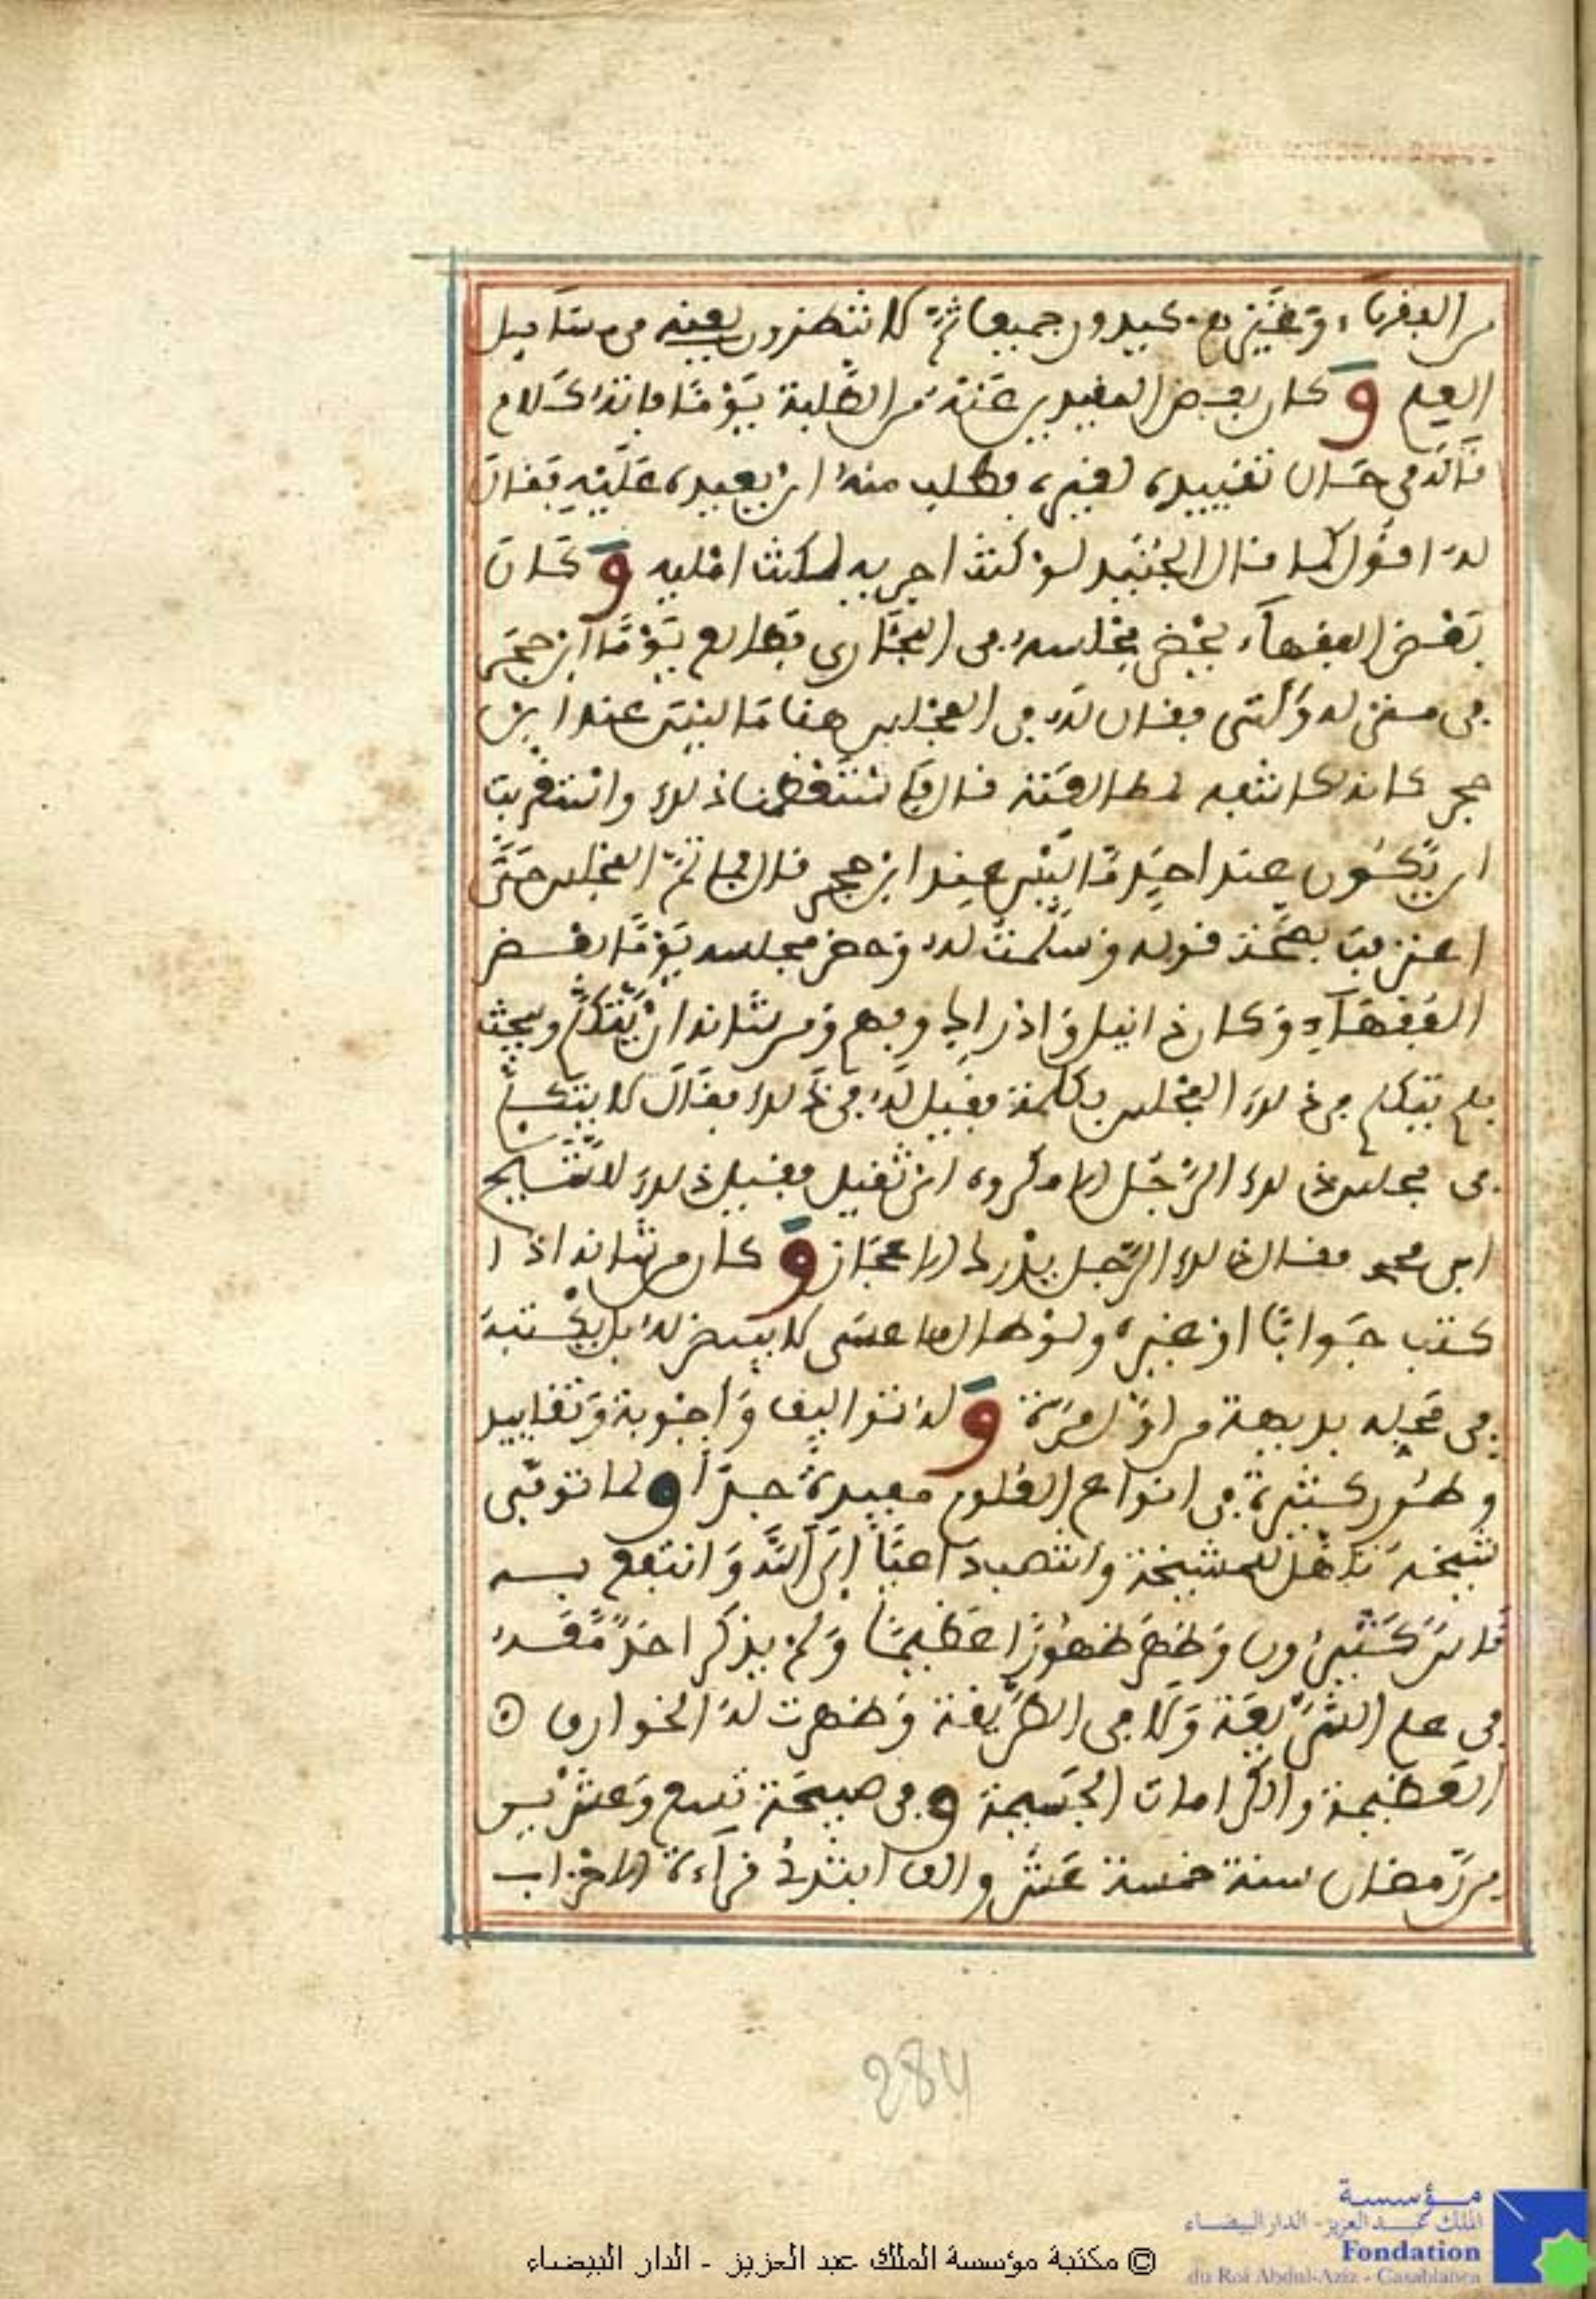 من الفقراء وغيرهم يجيدون جميعا ثم لا تنظرون بعينه في مسايل
العلم وَكان بعض المفيدين عنه من الطلبة يَوْمًا فاته كلام
قاله في حال تقييده لغيره فطلب منه ان يعيده عليه فقال
له اقول كما قال الجنيد لو كنت اجريه لكنت امليه وَكان
بعض الفقهاء يحضر مجلسه في البخاري فطالع يومًا ابن حجر
في مسئلة فقال له في المجلس هنا ما ليس عند ابن
حجر قال فاستعظمنا ذلك واستغربت
ان يكون عند احد ما ليس عند ابن حجر قال فما تم المجلس حتى
اعترفت بصحة قوله وسلمت له وحضر مجلسه يومًا بعض
الفقهاء وكان ذا نيل واذراك وفهم ومن شانه ان يتكلم ويبحث
فلم يتكلم في ذلك المجلس بكلمة فقيل له في ذلك فقال لا يتكلم
في مجلس ذلك الرجل الا مكروه ان ثقيل فقيل ذلك للشيخ
ابي محمد فقال ذلك الرجل يدرك الاعجاز وَكان من شانه اذا
كتب جوابًا او غيره ولو طال ما عسى لا يبيض له بل يكتبه
في محله بديهة من اول مرة وَله تواليف وَاجوبة وَتقاييد
وطرر كثيرة في انواع العلوم مفيدة جدًا ولما توفي
شيخه تاهل للمشيخة وانتصب داعيًا الى الله وَانتفع به
ناس كثيرون وظهر ظهورًا عظيمًا وَلم يذكر احد معه
في علم الشريعة ولا في الطريقة وَظهرت له الخوارق
العظيمة والكرامات الجسيمة وفي صبيحة تسع وعشرين
من رمضان سنة خمسة عشر والف ابتدئ قراءة الاحزاب
284
مؤسسة
الملك عبد العزيز - الدار البيضاء
Fondation
du Roi Abdul-Aziz - Casablanca
© مكتبة مؤسسة الملك عبد العزيز - الدار البيضاء